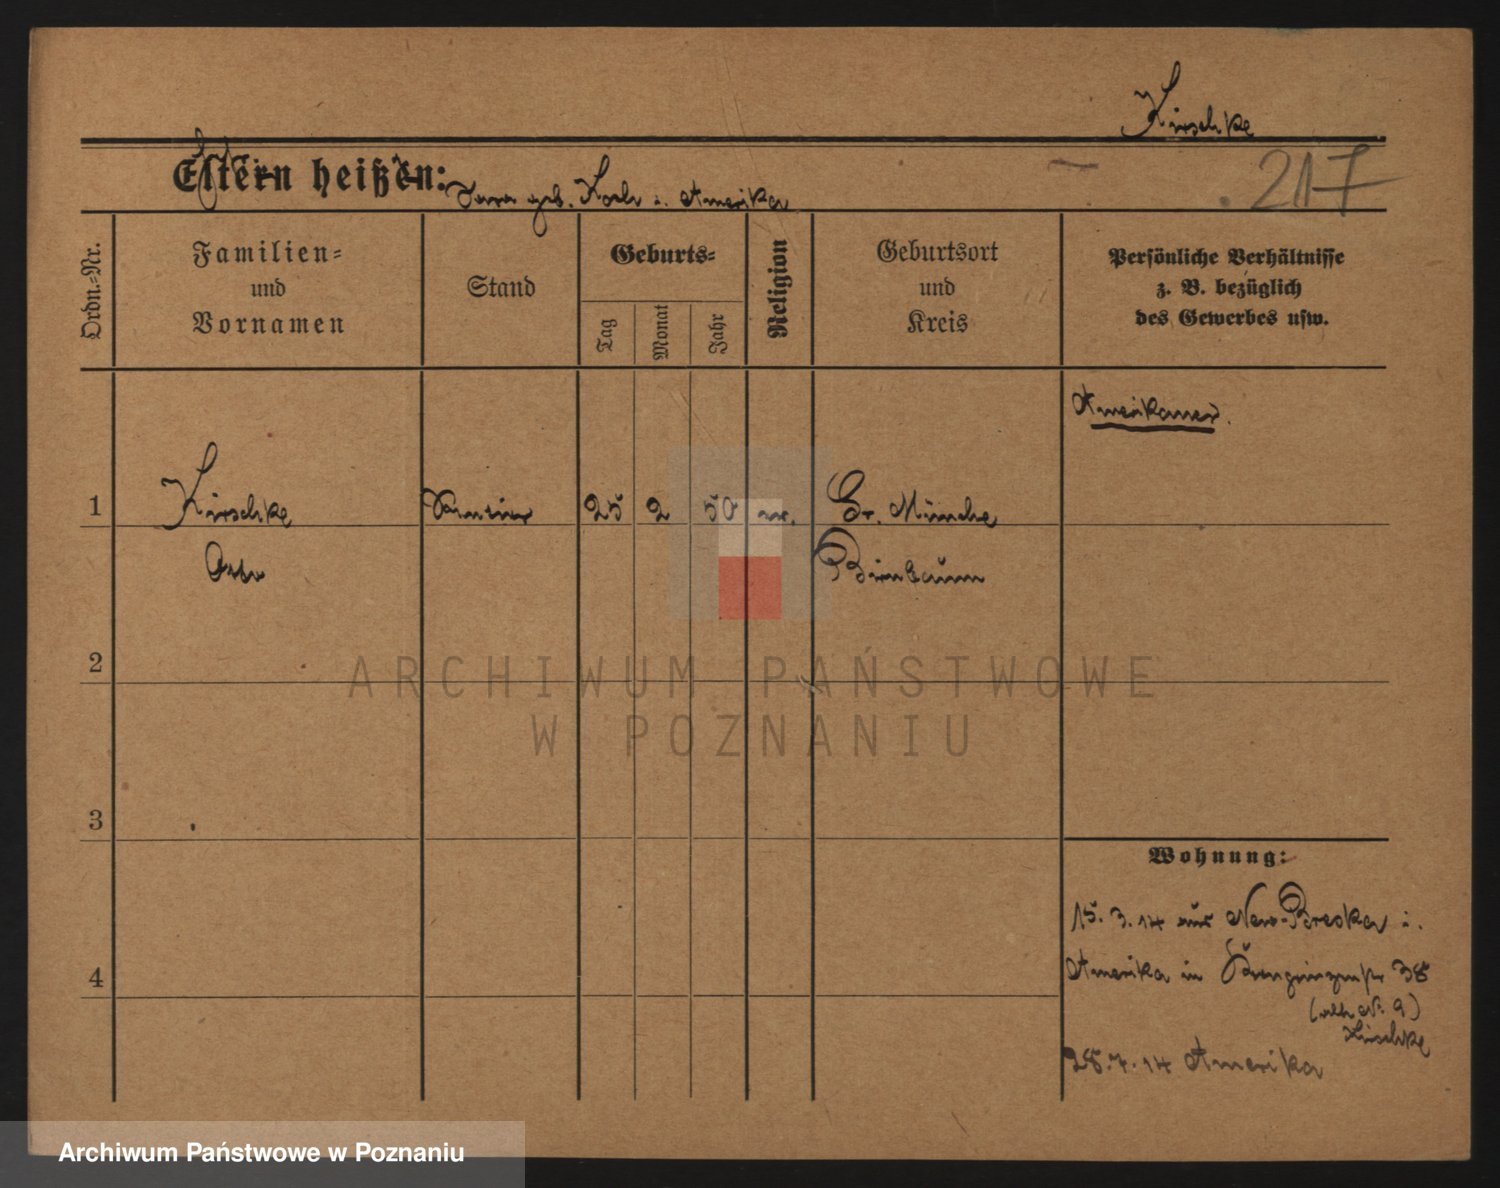 Kirschke
Eltern heißen:
geb. Koch i. Amerika
217
Ordn.-Nr.
Familien-
und
Vornamen
Stand
Geburts-
Tag
Monat
Jahr
Religion
Geburtsort
und
Kreis
Persönliche Verhältnisse
z. B. bezüglich
des Gewerbes usw.
Amerikaner.
1
Kirschke
Rentier
25
2
50
Gr. Münche
Birnbaum
2
3
4
Wohnung:
15. 3. 14 aus New- i.
Amerika in 38
Kirschke
28. 7. 14 Amerika
ARCHIWUM PAŃSTWOWE
W POZNANIU
Archiwum Państwowe w Poznaniu